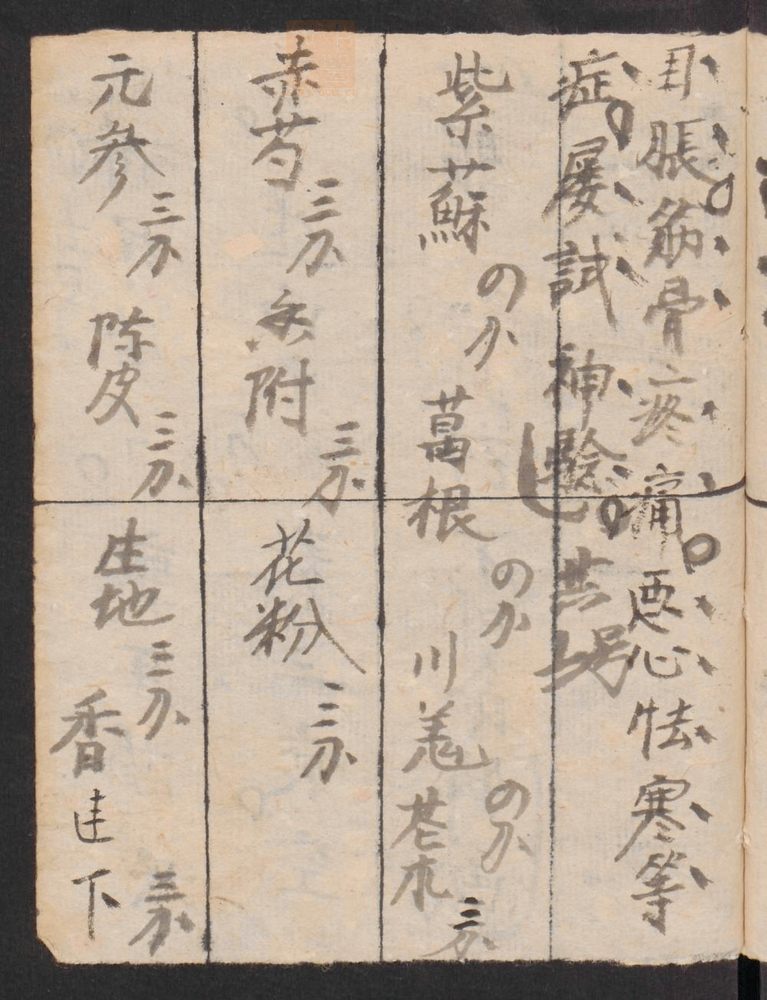 目脹筋骨疼痛惡心怯寒等
症屡試神驗
紫蘇 の分 葛根 の分 川羗 の分 茋朮 三分
赤芍 三分 香附 三分 花粉 三分
元參 三分 陈皮 三分 生地 三分 香 下 三分